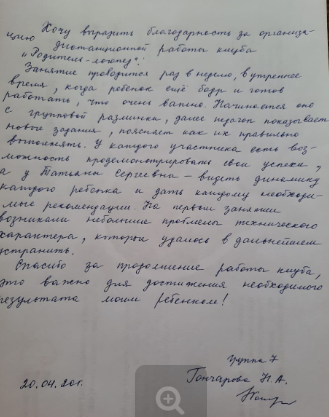 Хочу выразить благодарность за организа-
цию дистанционной работы клуба
"Родитель-логопед".
Занятие проводится раз в неделю, в утреннее
время, когда ребенок ещё бодр и готов
работать, что очень важно. Начинается оно
с групповой разминки, далее педагог показывает
новые задания, поясняет как их правильно
выполнять. У каждого участника есть воз-
можность продемонстрировать свои успехи,
а у Татьяны Сергеевны - видеть динамику
каждого ребенка и дать каждому необходи-
мые рекомендации. На первом занятии
возникали небольшие проблемы технического
характера, которые удалось в дальнейшем
устранить.
Спасибо за продолжение работы клуба,
это важно для достижения необходимого
результата моим ребенком!
группа 7
20.04.20г. Гончарова Н.А.